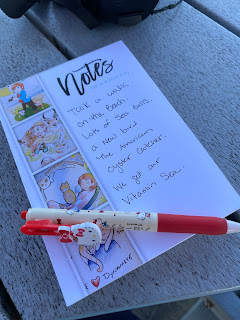 Notes
Talk a walk
on the Beach
Lots of Sea Gulls.
a new bird
The American
Oyster Catcher.
We got our
Vitamin Sea.
Dynamite